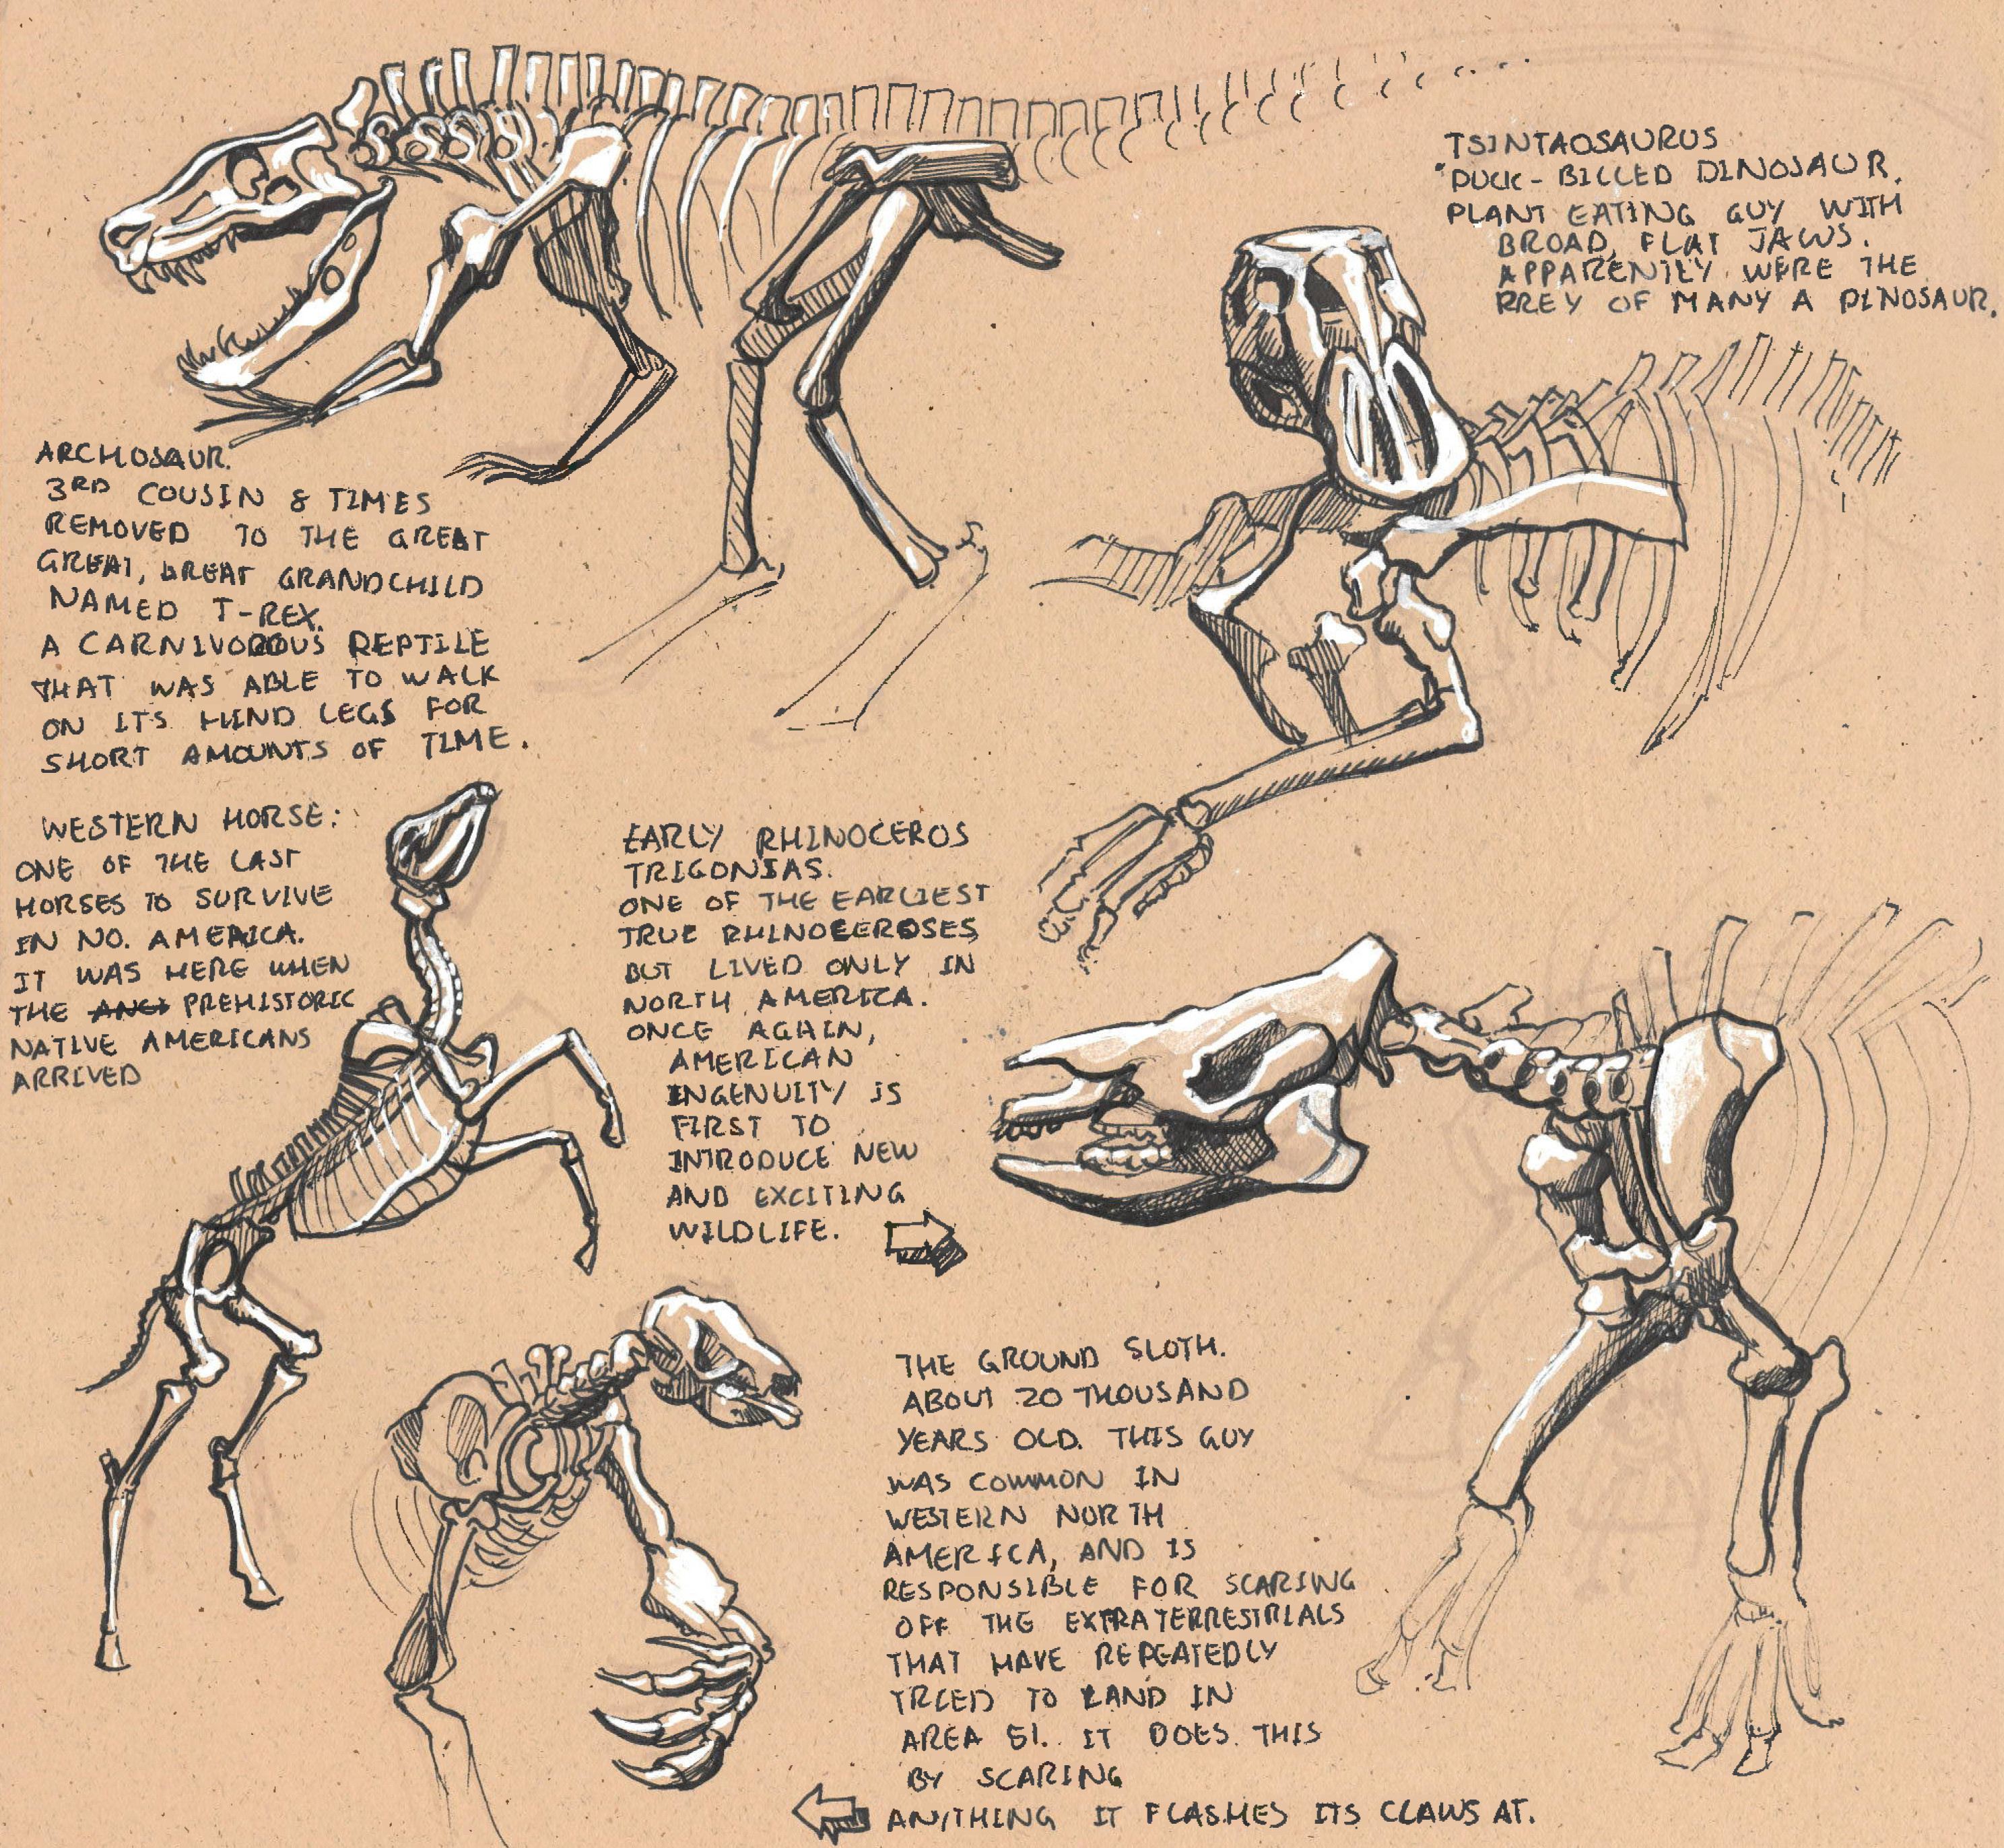 TSINTAOSAURUS
"DUCK-BILLED DINOSAUR.
PLANT EATING GUY WITH
BROAD, FLAT JAWS.
APPARENTLY WERE THE
PREY OF MANY A DINOSAUR.
ARCHOSAUR.
3RD COUSIN 8 TIMES
REMOVED TO THE GREAT
GREAT, GREAT GRANDCHILD
NAMED T-REX.
A CARNIVOROUS REPTILE
THAT WAS ABLE TO WALK
ON ITS HIND LEGS FOR
SHORT AMOUNTS OF TIME.
WESTERN HORSE:
ONE OF THE LAST
HORSES TO SURVIVE
IN NO. AMERICA.
IT WAS HERE WHEN
THE PREHISTORIC
NATIVE AMERICANS
ARRIVED
EARLY RHINOCEROS
TRIGONIAS.
ONE OF THE EARLIEST
TRUE RHINOCEROSES
BUT LIVED ONLY IN
NORTH AMERICA.
ONCE AGAIN,
AMERICAN
INGENUITY IS
FIRST TO
INTRODUCE NEW
AND EXCITING
WILDLIFE.
THE GROUND SLOTH.
ABOUT 20 THOUSAND
YEARS OLD. THIS GUY
WAS COMMON IN
WESTERN NORTH
AMERICA, AND IS
RESPONSIBLE FOR SCARING
OFF THE EXTRATERRESTRIALS
THAT HAVE REPEATEDLY
TRIED TO LAND IN
AREA 51. IT DOES THIS
BY SCARING
ANYTHING IT FLASHES ITS CLAWS AT.